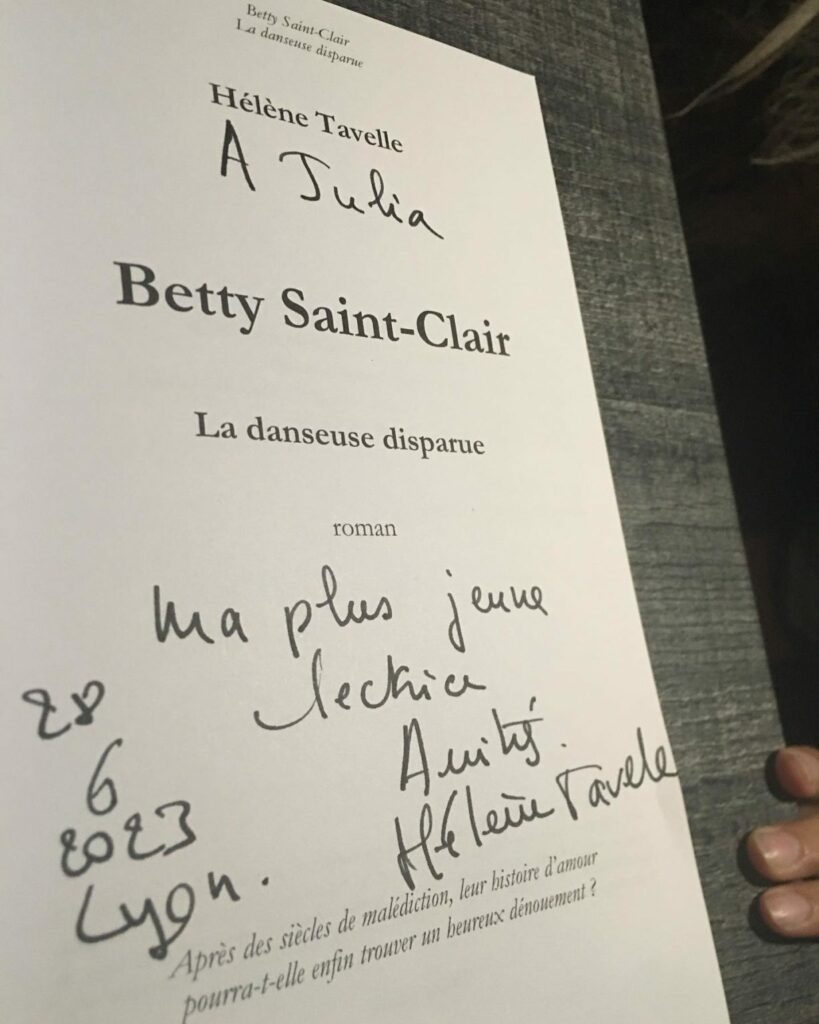 Betty Saint-Clair
La danseuse disparue
Hélène Tavelle
A Julia
Betty Saint-Clair
La danseuse disparue
roman
ma plus jeune
lectrice
Amitiés.
Hélène Tavelle
28
6
2023
Lyon.
Après des siècles de malédiction, leur histoire d'amour
pourra-t-elle enfin trouver un heureux dénouement ?